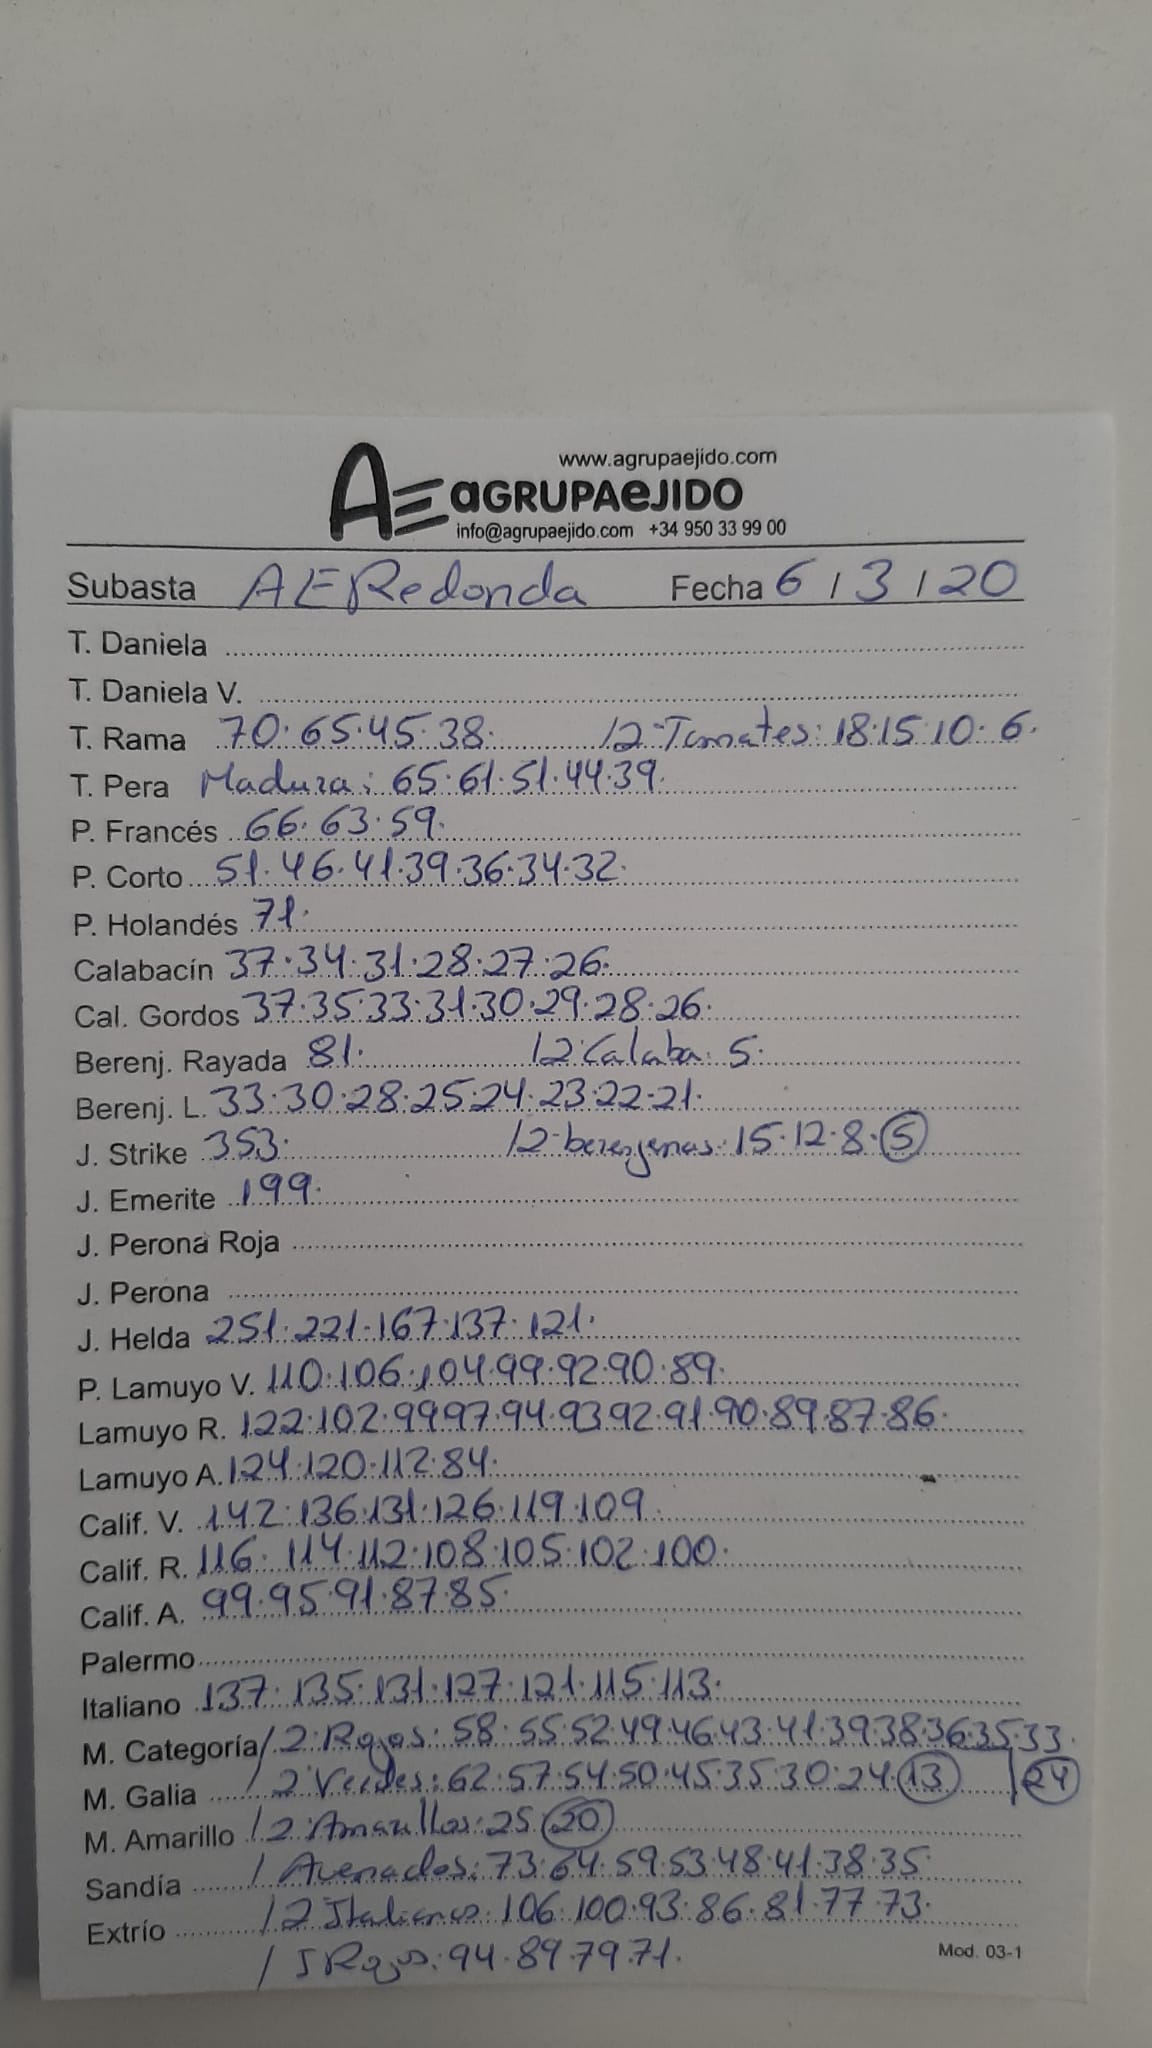 www.agrupaejido.com
AE aGRUPAeJIDO
info@agrupaejido.com +34 950 33 99 00
Subasta AERedonda Fecha 6/3/20
T. Daniela
T. Daniela V.
T. Rama 70.65.45.38. 12ºTomates: 18.15.10.6.
T. Pera Madura: 65.61.51.44.39.
P. Francés 66.63.59.
P. Corto 51.46.41.39.36.34.32.
P. Holandés 71.
Calabacín 37.34.31.28.27.26.
Cal. Gordos 37.35.33.31.30.29.28.26.
Berenj. Rayada 81. 12ºCalaba. 5.
Berenj. L. 33.30.28.25.24.23.22.21.
J. Strike 353. 12 berenjenas: 15.12.8.5
J. Emerite 199.
J. Perona Roja
J. Perona
J. Helda 251.221.167.137.121.
P. Lamuyo V. 110.106.104.99.92.90.89.
Lamuyo R. 122.102.99.97.94.93.92.91.90.89.87.86.
Lamuyo A. 124.120.112.84.
Calif. V. 142.136.131.126.119.109.
Calif. R. 116.114.112.108.105.102.100.
Calif. A. 99.95.91.87.85.
Palermo
Italiano 137.135.131.127.121.115.113.
M. Categoría /2 Rojos: 58.55.52.49.46.43.41.39.38.36.35.33.
M. Galia /2 Verdes: 62.57.54.50.45.35.30.24.13 24
M. Amarillo /2 Amarillos: 25.20
Sandía / Avenados: 73.64.59.53.48.41.38.35.
Extrío /2 Italianos: 106.100.93.86.81.77.73.
/ S Rojos: 94.89.79.71.
Mod. 03-1